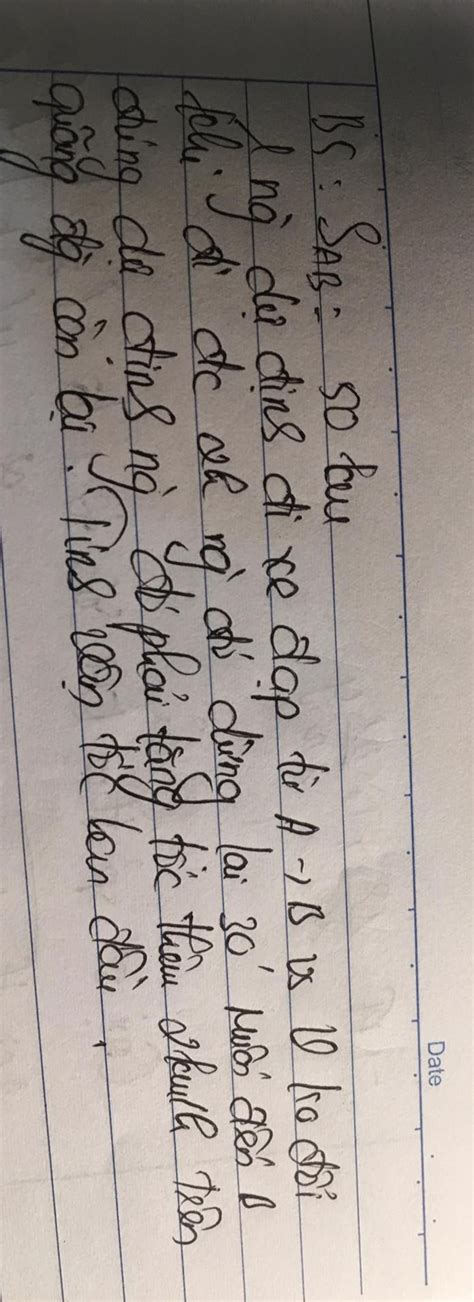 Date
B5: SAB = 50 km
1 ng dự định đi xe đạp từ A -> B vs V ko đổi
khi đi đc 2h ng đó dừng lại 30' Muốn đến B
đúng dự định ng đó phải tăng tốc thêm 2km/h trên
quãng đg còn lại. Tính vận tốc ban đầu.